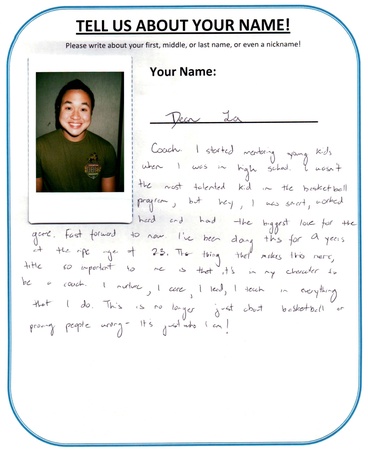 TELL US ABOUT YOUR NAME!
Please write about your first, middle, or last name, or even a nickname!
Your Name:
Dean La
Coach. I started mentoring young kids
when I was in high school. I wasn't
the most talented kid in the basketball
program, but hey, I was smart, worked
hard and had the biggest love for the
game. Fast forward to now. I've been doing this for 9 years
at the ripe age of 23. The thing that makes this name,
title so important to me is that it's in my character to
be a coach. I nurture, I care, I lead, I teach in everything
that I do. This is no longer just about basketball or
proving people wrong - It's just who I am!